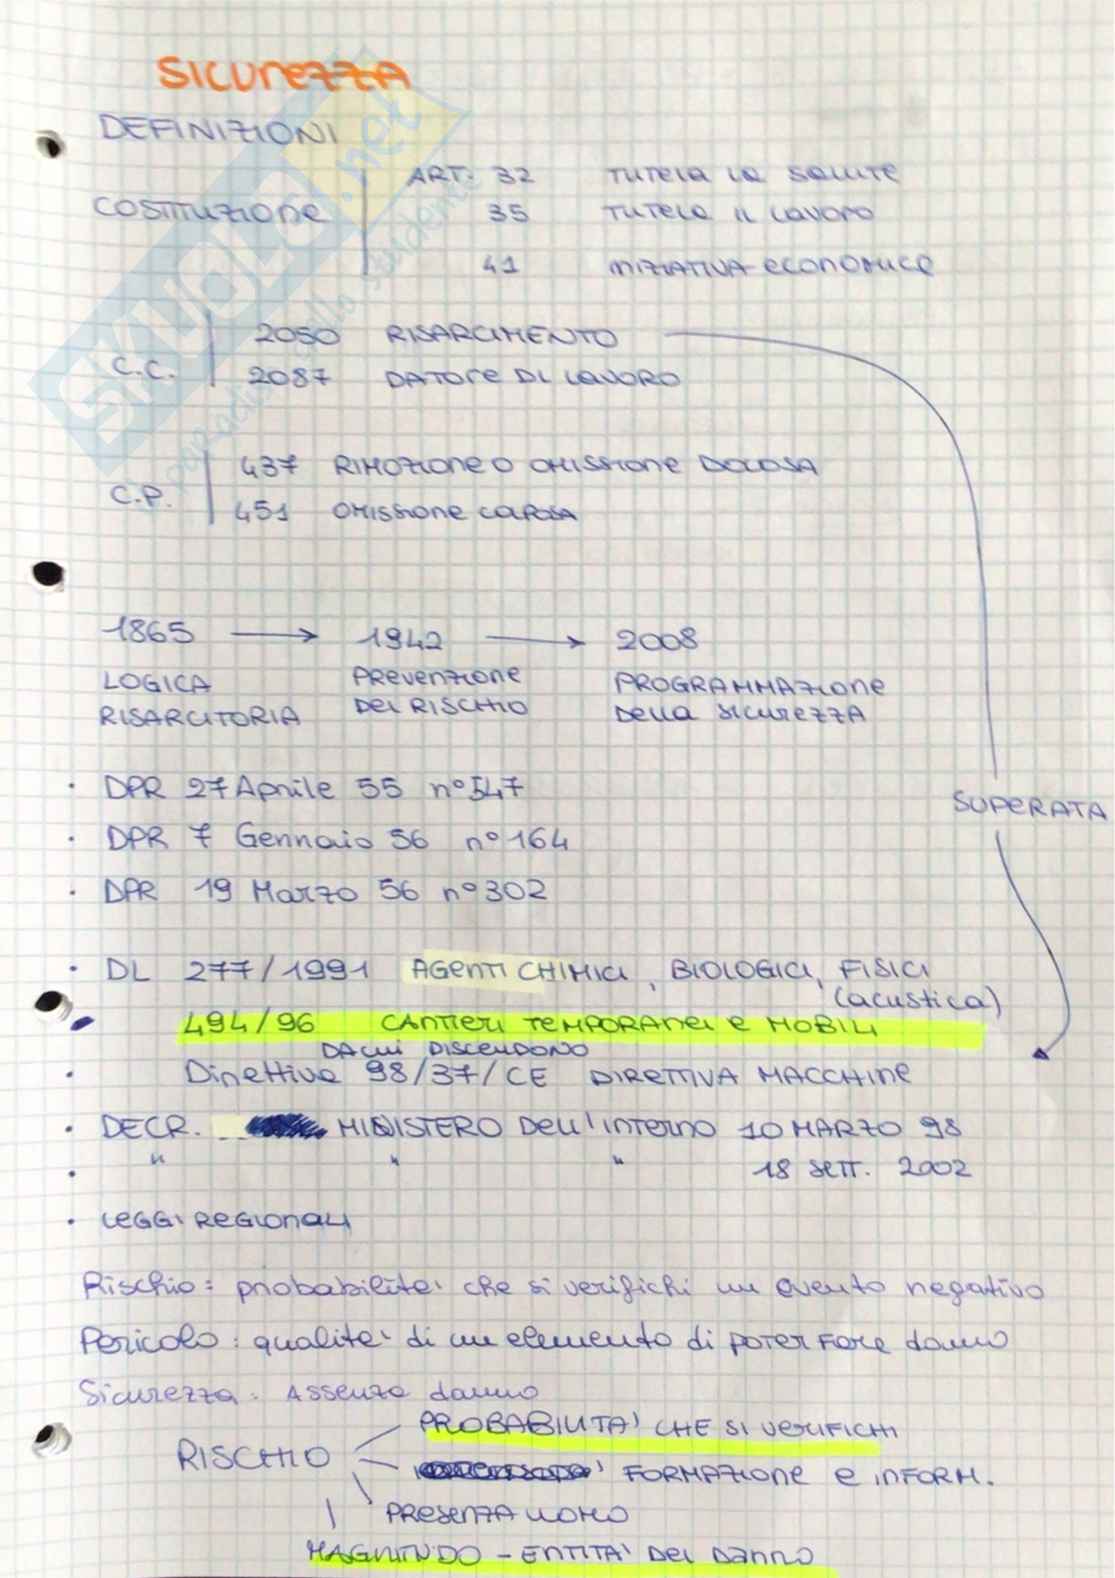 SICUREZZA
DEFINIZIONI
COSTITUZIONE
ART. 32 TUTELA LA SALUTE
35 TUTELA IL LAVORO
41 INIZIATIVA ECONOMICA
C.C.
2050 RISARCIMENTO
2087 DATORE DI LAVORO
C.P.
437 RIMOZIONE O OMISSIONE DOLOSA
451 OMISSIONE COLPOSA
1865 → 1942 → 2008
LOGICA RISARCITORIA
PREVENZIONE DEL RISCHIO
PROGRAMMAZIONE DELLA SICUREZZA
• DPR 27 Aprile 55 n°547
SUPERATA
• DPR 7 Gennaio 56 n°164
• DPR 19 Marzo 56 n°302
• DL 277/1991 AGENTI CHIMICI, BIOLOGICI, FISICI
(acustica)
494/96 CANTIERI TEMPORANEI E MOBILI
DA CUI DISCENDONO
• Direttiva 98/37/CE DIRETTIVA MACCHINE
• DECR. MINISTERO DELL'INTERNO 10 MARZO 98
• " " " 18 SETT. 2002
• LEGGI REGIONALI
Rischio: probabilità che si verifichi un evento negativo
Pericolo: qualità di un elemento di poter fare danno
Sicurezza: Assenza danno
RISCHIO
PROBABILITA' CHE SI VERIFICHI
FORMAZIONE E INFORM.
PRESENZA UOMO
MAGNITUDO - ENTITA' DEL DANNO
SKUOLA.net
paradiso dello studente